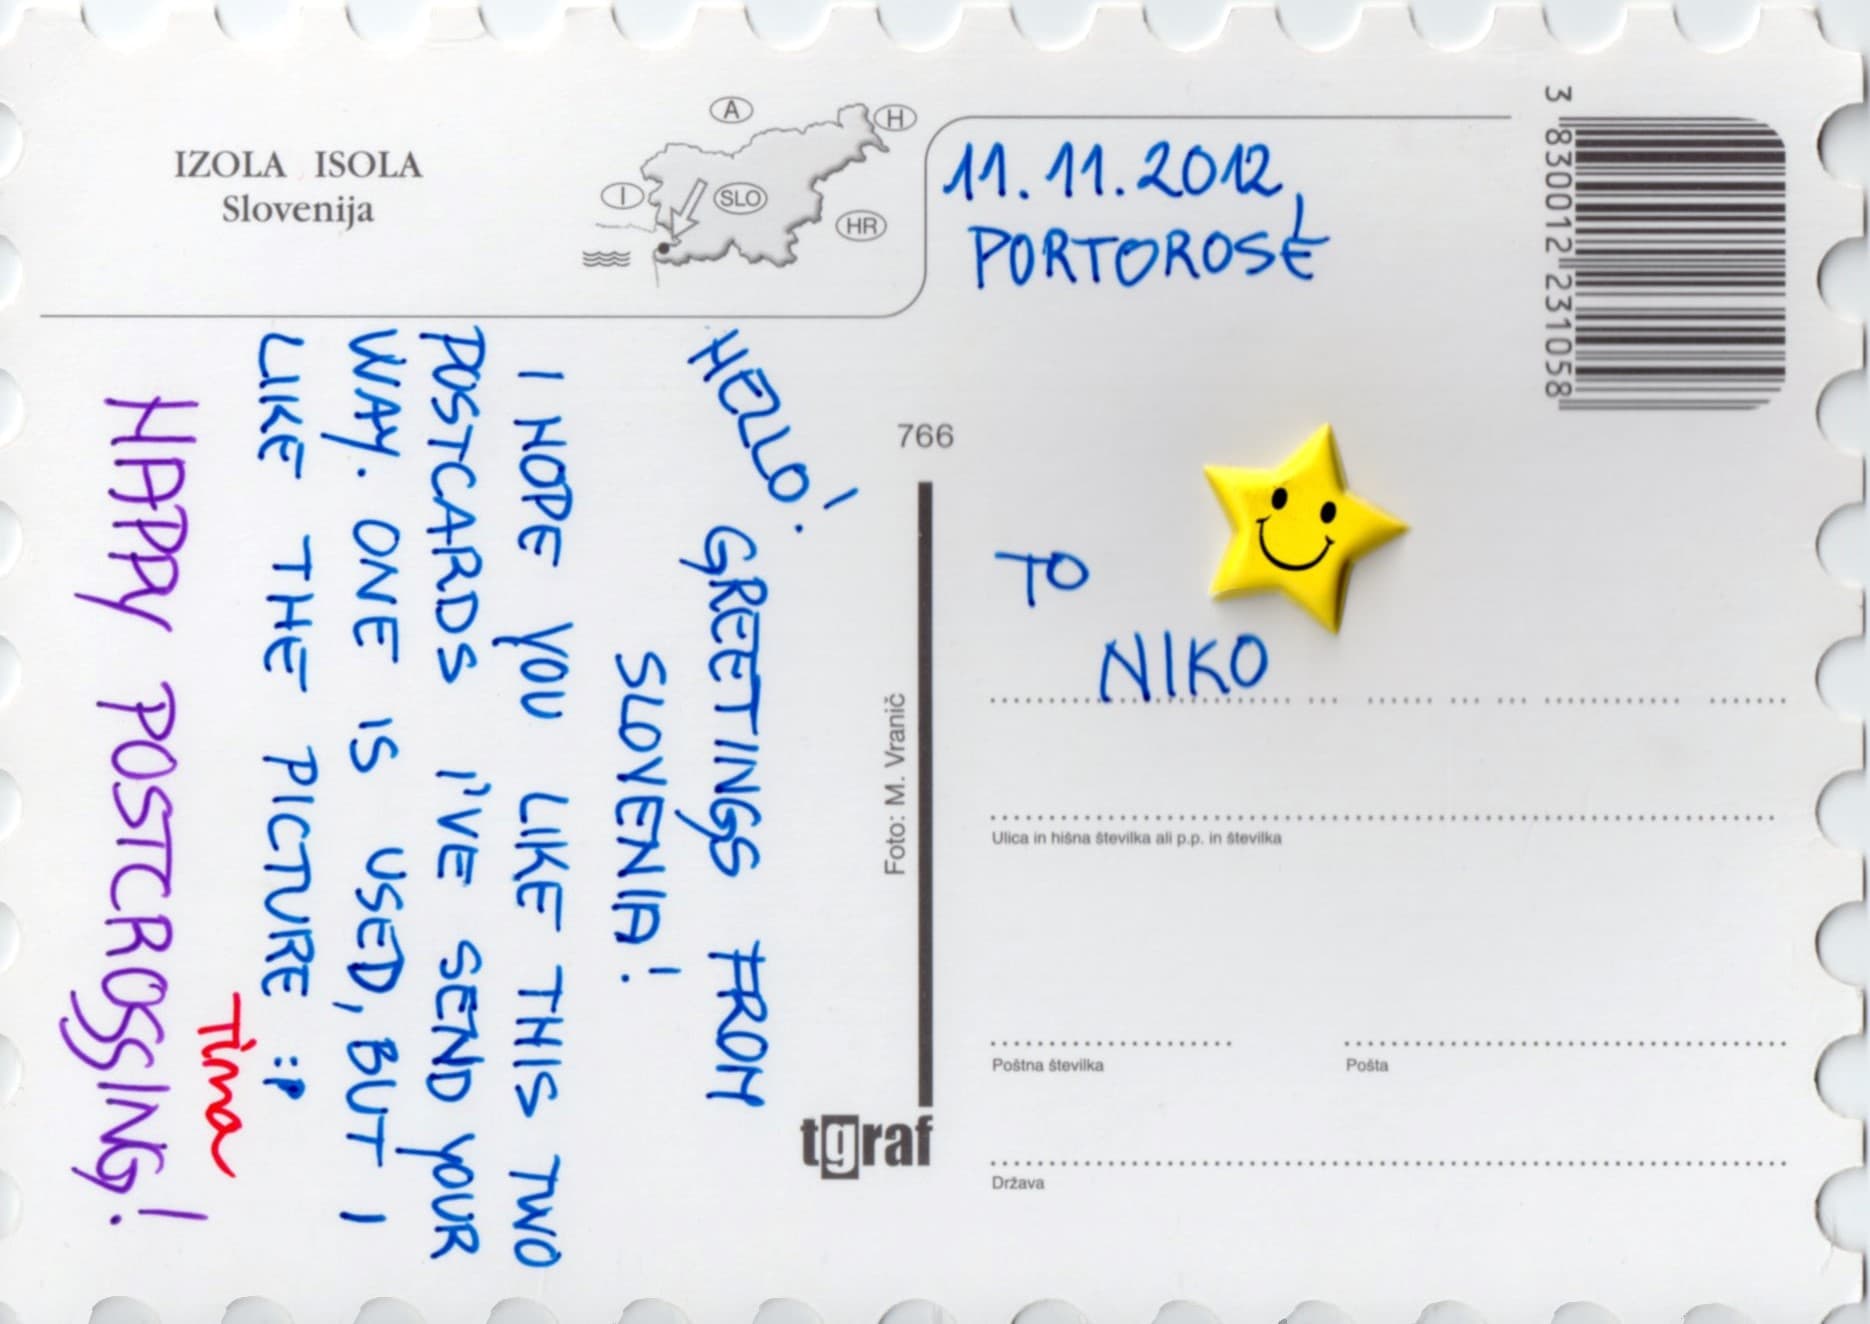 IZOLA ISOLA
Slovenija
A
H
I
SLO
HR
11.11.2012,
PORTOROSE
3 830012 231058
HELLO!
GREETINGS FROM
SLOVENIA!
I HOPE YOU LIKE THIS TWO
POSTCARDS I'VE SEND YOUR
WAY. ONE IS USED, BUT I
LIKE THE PICTURE :P
Tina
HAPPY POSTCROSSING!
766
Foto: M. Vranič
tgraf
TO
NIKO
Ulica in hišna številka ali p.p. in številka
Poštna številka
Pošta
Država